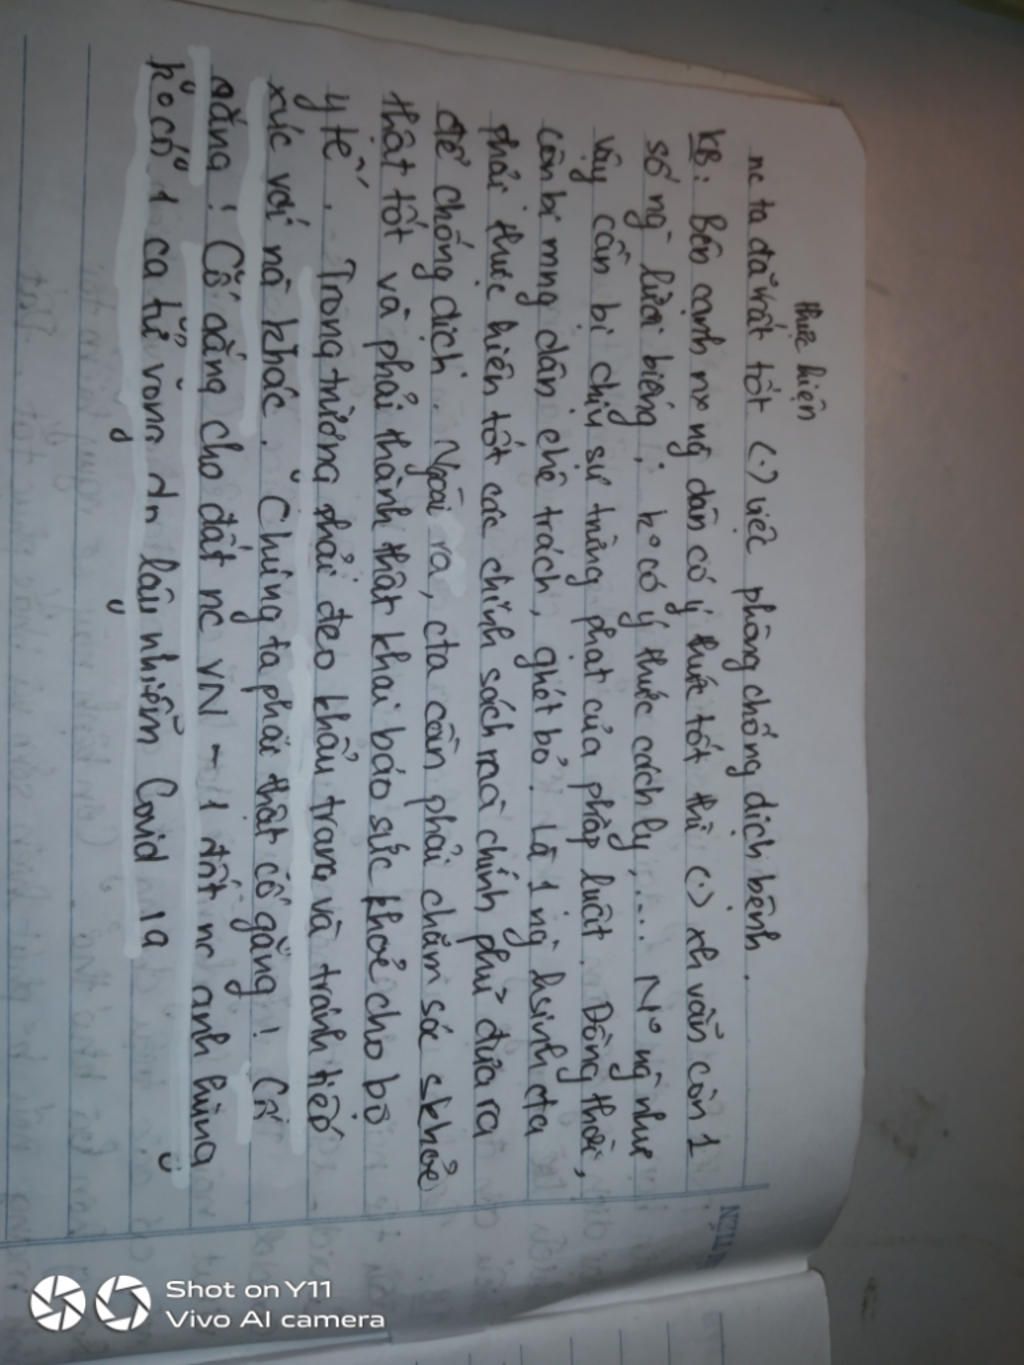 thực hiện
nc ta đã rất tốt (.) việc phòng chống dịch bệnh.
KB: Bên cạnh nx ng dân có ý thức tốt thì (.) xh vẫn còn 1
số ng lười biếng; ko có ý thức cách ly,... No ng như
vậy cần bị chịu sự trừng phạt của pháp luật. Đồng thời,
còn bị mng dân chê trách, ghét bỏ. Là 1 ng hsinh cta
phải thực hiện tốt các chính sách mà chính phủ đưa ra
để chống dịch. Ngoài ra, cta cần phải chăm sóc skhỏe
thật tốt và phải thành thật khai báo sức khỏe cho bộ
y tế. Trong trường phải đeo khẩu trang và tránh tiếp
xúc với nà khác. Chúng ta phải thật cố gắng! Cố
gắng! Cố gắng cho đất nc VN - 1 đất nc anh hùng
ko có 1 ca tử vong do lây nhiễm Covid 19
NZILA
Shot on Y11
Vivo AI camera